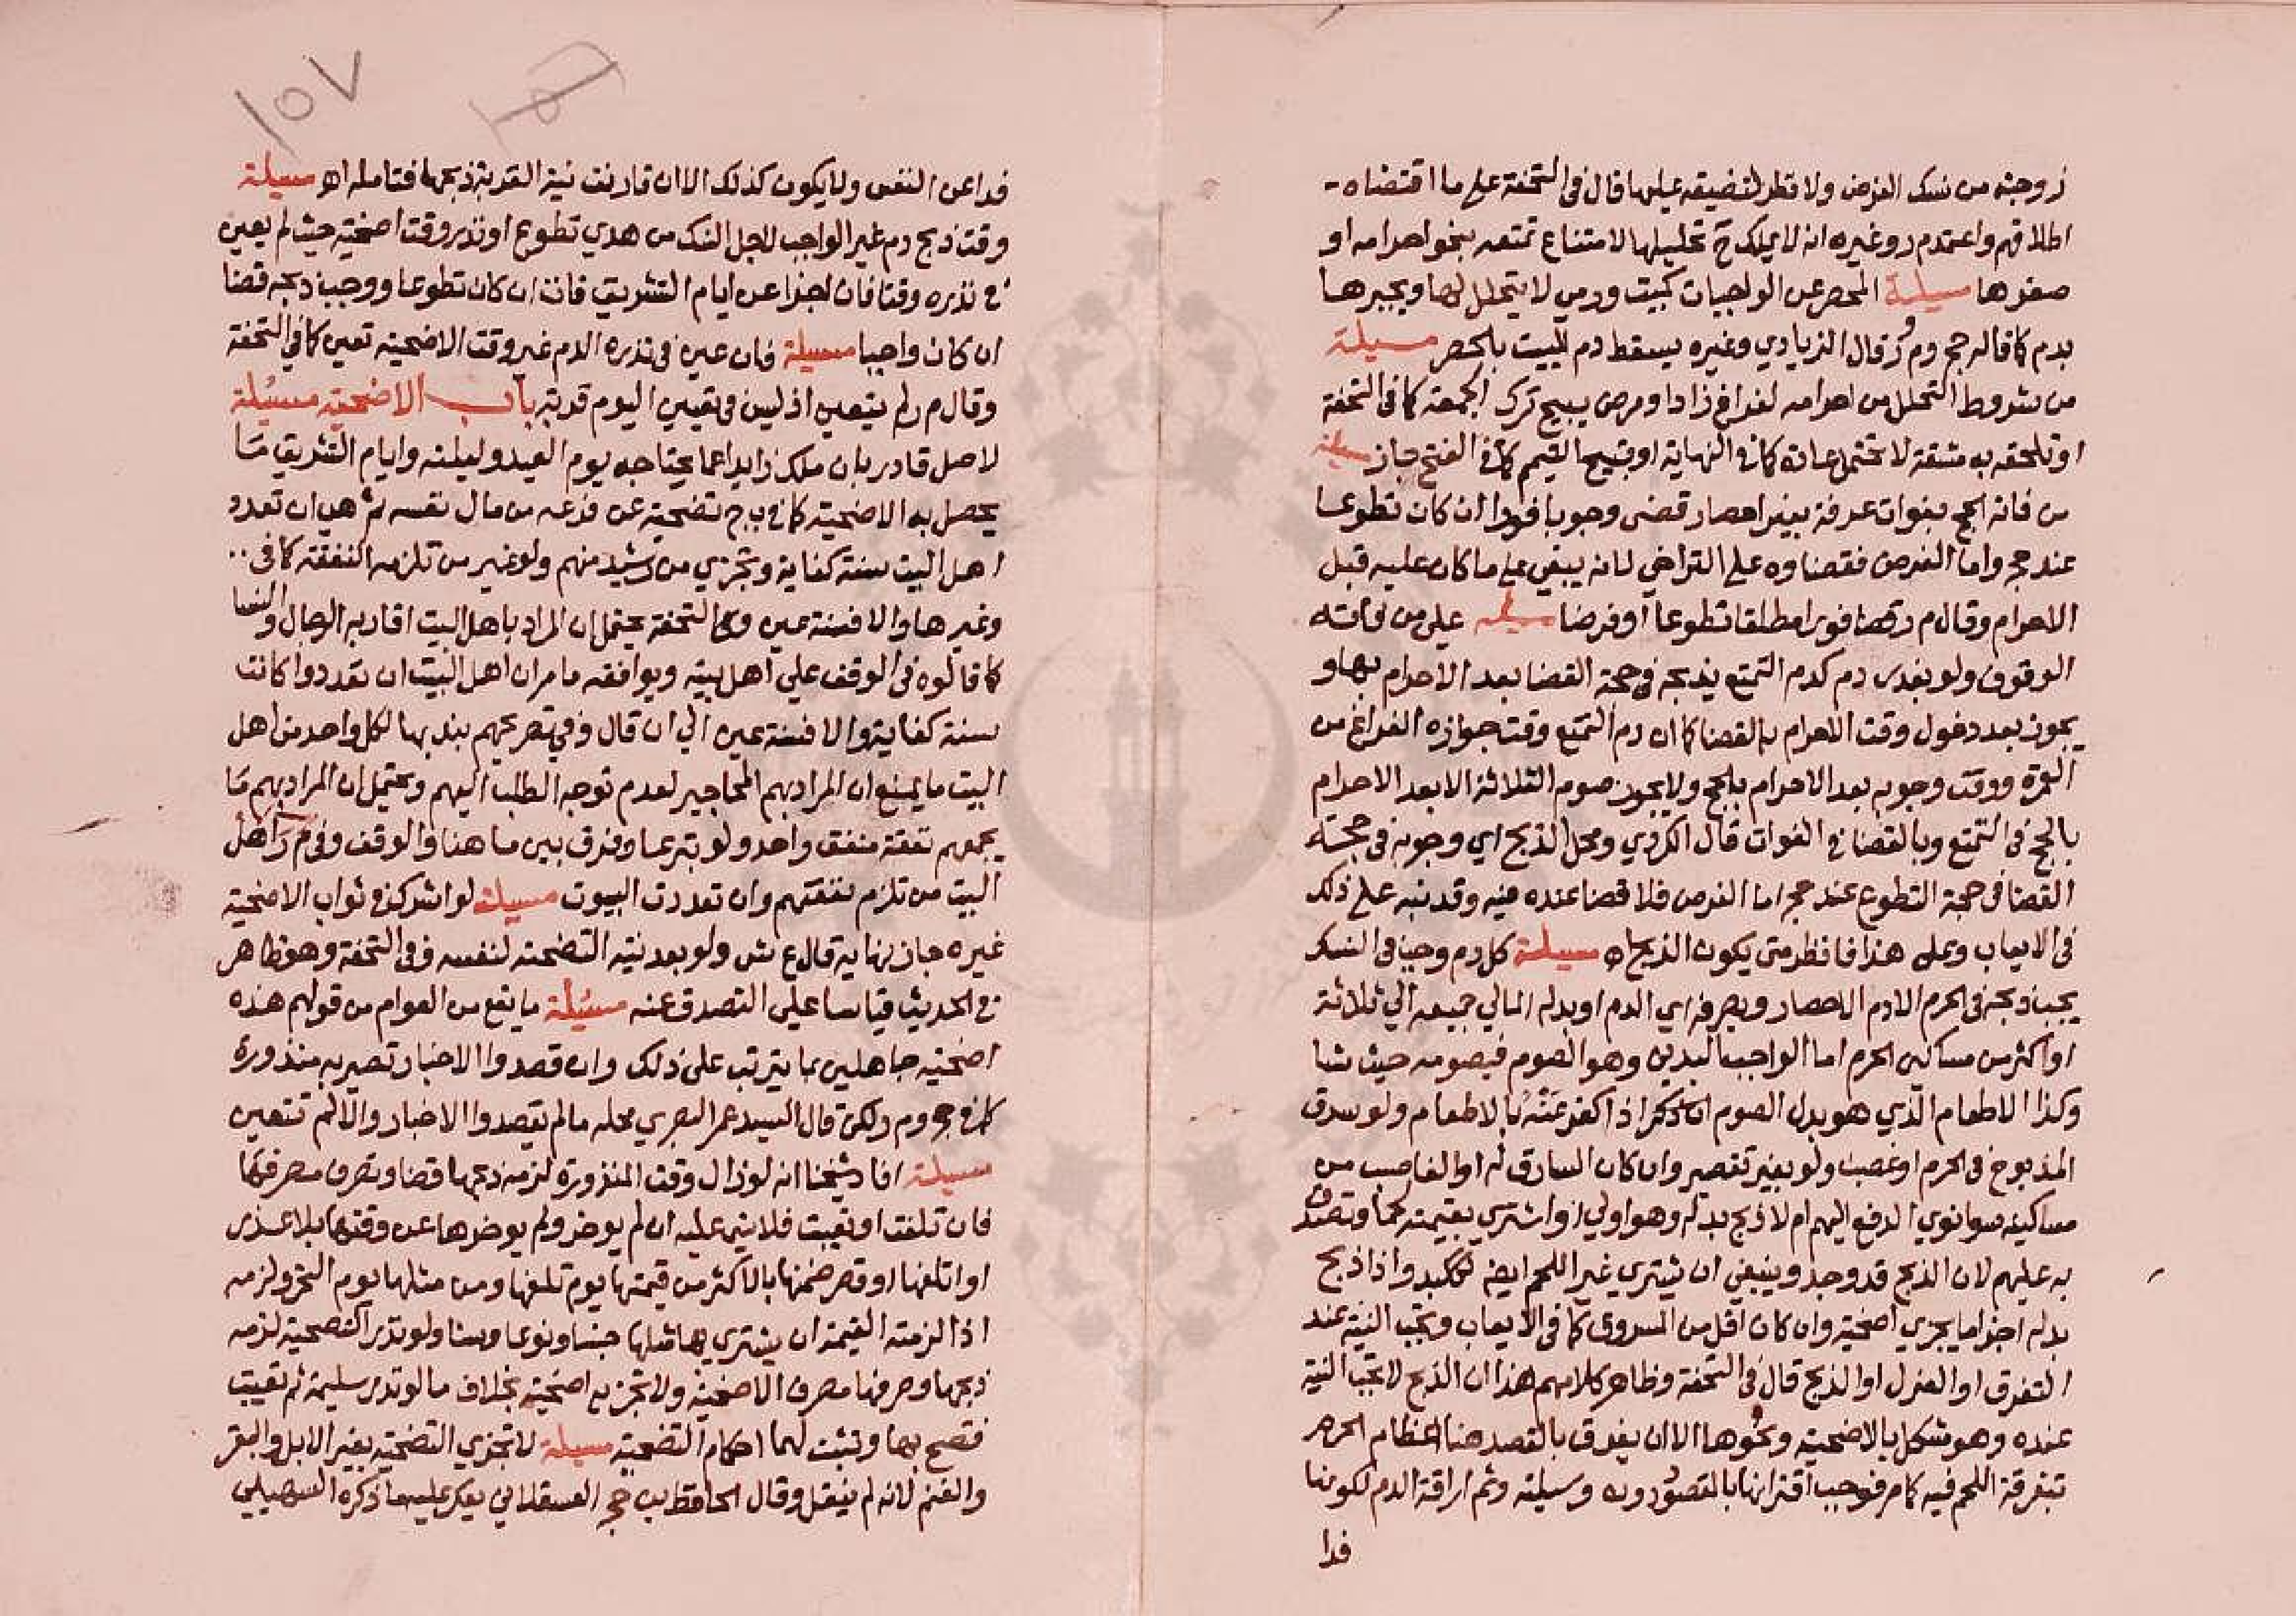 زوجته من نسك الفرض ولا نظر لتضيقه عليها قال في التحفة على ما اقتضاه
اطلاقهم واعتمدم ر وغيره انه لا يملك ح تحليلها لامتناع تمتعه بنحو احرامه او
صغرها مسيلة المحصر عن الواجبات كمبيت ورمي لا يتحلل لها ويجبرها
بدم كما قاله حج وم ر وقال الزيادي وغيره يسقط دم المبيت بالحصر مسيلة
من شروط التحلل من احرامه لفراغ زاد او مرض يبيح ترك الجمعة كما في التحفة
او تلحقه به مشقة لا تحتمل عادة كما في النهاية او يبيح التيمم كما في الفتح جاز مسيلة
من فاته الحج بفوات عرفة بغير احصار قضى وجوبا فورا ان كان تطوعا
عند حج واما الفرض فقضاوه على التراخي لانه يبقى على ما كان عليه قبل
الاحرام وقال م ر قضا فورا مطلقا تطوعا او فرضا مسيله على من فاته
الوقوف ولو بعذر دم كدم التمتع يذبحه في حجة القضا بعد الاحرام بها و
يجوز بعد دخول وقت الاحرام بالقضا كما ان دم التمتع وقت جوازه الفراغ من
العمرة ووقت وجوبه بعد الاحرام بالحج ولا يجوز صوم الثلاثة الا بعد الاحرام
بالحج في التمتع وبالقضا في الفوات قال الكردي ومحل الذبح اي وجوبه في حجة
القضا في حجة التطوع عند حج اما الفرض فلا قضا عنده فيه وقد نبه على ذلك
في الايعاب وعلى هذا فانظر متى يكون الذبح اه مسيلة كل دم وجب في النسك
يجب ذبحه في الحرم الا دم الاحصار ويصرفه اي الدم او بدله المالي جميعه الي ثلاثة
او اكثر من مساكين الحرم اما الواجب البدني وهو الصوم فيصومه حيث شا
وكذا الاطعام الذي هو بدل الصوم اذا كفر عنه بالاطعام ولو سرق
المذبوح في الحرم او غصب ولو بغير تقصير وان كان السارق له او الغاصب من
مساكينه سوا نوي الدفع اليهم ام لا ذبح بدله وهو اولي او اشتري بقيمته لحما وتصدق
به عليهم لان الذبح قد وجد وينبغي ان يشتري غير اللحم ايضا ككبد واذا ذبح
بدله اجزا ما يجزي اضحية وان كان اقل من المسروق كما في الايعاب وتجب النية عند
التفرق او العزل او الذبح قال في التحفة وظاهر كلامهم هذا ان الذبح لا تجب النية
عنده وهو مشكل بالاضحية ونحوها الا ان يفرق بالقصد هنا اعظام الحرم
بتفرقة اللحم فيه كما مر فوجب اقترانها بالمقصود دون وسيلته وثم اراقة الدم لكونها
فدا
١٥٧
فدا عن النفس ولا يكون كذلك الا ان قارنت نية القربة ذبحها فتامله اهـ مسيلة
وقت ذبح دم غير الواجب لاجل النسك من هدي تطوع او نذر وقت اضحية حيث لم يعين
في نذره وقتا فان اخر عن ايام التشريق فات ان كان تطوعا ووجب ذبحه قضا
ان كان واجبا مسيلة فان عين في نذره الدم غير وقت الاضحية تعين كما في التحفة
وقال م ر لم يتعين اذ ليس في تعيين اليوم قربة باب الاضحية مسئلة
لا صل قادر بان ملك زايدا عما يحتاجه يوم العيد وليلته وايام التشريق ما
يحصل به الاضحية كما في ب ج تضحية عن فرعه من مال نفسه ثم هي ان تعدد
اهل البيت سنة كفاية وتجزي من رشيد منهم ولو غير من تلزمه النفقة كما في
وغيرها والا فسنة عين وفي التحفة يحتمل ان المراد باهل البيت اقاربه الرجال والنسا
كما قالوه في الوقف على اهل بيته ويوافقه ما مر ان اهل البيت ان تعددوا كانت
سنة كفاية والا فسنة عين الي ان قال وفي تصريحهم بندبها لكل واحد من اهل
البيت ما يمنع ان المراد بهم المحاجير لعدم توجه الطلب اليهم ويحتمل ان المراد بهم ما
يجمعهم نفقة منفق واحد ولو تبرعا وفرق بين ما هنا والوقف وفي م ر اهل
البيت من تلزم نفقتهم وان تعددت البيوت مسيلة لو اشرك في ثواب الاضحية
غيره جاز نهاية قال ع ش ولو بعد نية التضحية لنفسه وفي التحفة وهو ظاهر
في الحديث قياسا على التصدق عنه مسئلة ما يقع من العوام من قولهم هذه
اضحية جاهلين بما يترتب على ذلك وان قصدوا الاخبار تصير به منذورة
كما في حج وم ر لكن قال السيد عمر البصري محله ما لم يقصدوا الاخبار والا لم تتعين
مسيلة افاد شيخنا انه لو زال وقت المنذورة لزمه ذبحها قضا وتصرف مصرفها
فان تلفت او تعيبت فلا شي عليه ان لم يوخر ولم يوخرها عن وقتها بلا عذر
او اتلفها او قصر ضمنها بالاكثر من قيمتها يوم تلفها ومن مثلها يوم النحر ولزمه
اذا لزمته القيمة ان يشتري بها مثلها جنسا ونوعا وسنا ولو نذر التضحية لزمه
ذبحها وصرفها مصرف الاضحية ولا تجزيه اضحية بخلاف ما لو نذر سليمة ثم تعيبت
فتضح بها وتثبت لها احكام التضحية مسيلة لا تجزي التضحية بغير الابل والبقر
والغنم لانه لم ينقل وقال الحافظ بن حجر العسقلاني يعكر عليه ما ذكره السهيلي